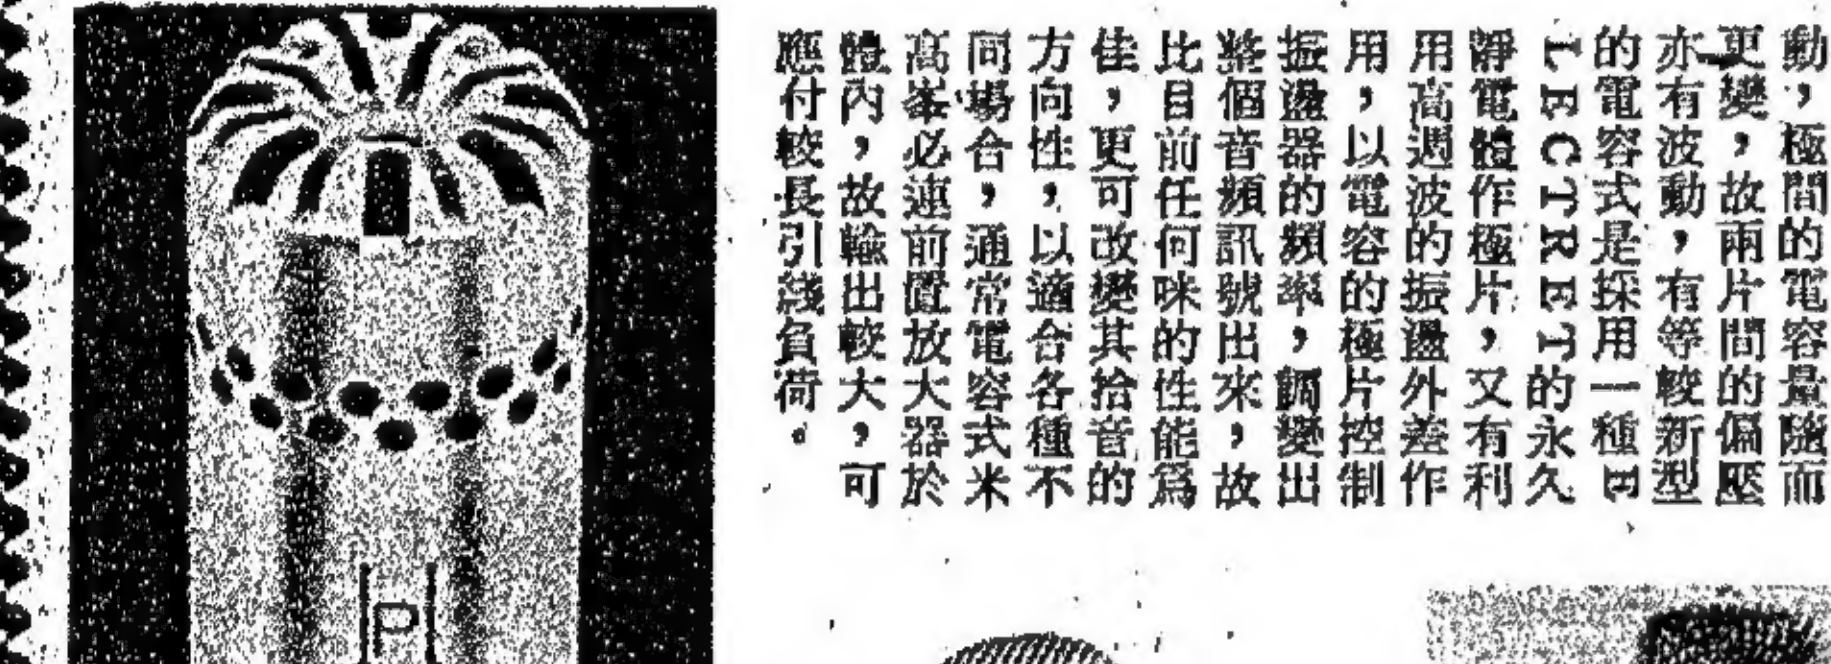 動，極間的電容量隨而
更變，故兩片間的偏壓
亦有波動，有等較新型
的電容式是採用一種E
LECTRET的永久
靜電體作極片，又有利
用高週波的振盪外差作
用，以電容的極片控制
振盪器的頻率，調變出
整個音頻訊號出來，故
比目前任何咪的性能爲
佳，更可改變其拾音的
方向性，以適合各種不
同場合，通常電容式米
高峯必連前置放大器於
體內，故輸出較大，可
應付較長引綫負荷。
P